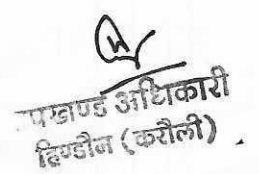 पखण्ड अधिकारी
हिण्डौन (करौली)